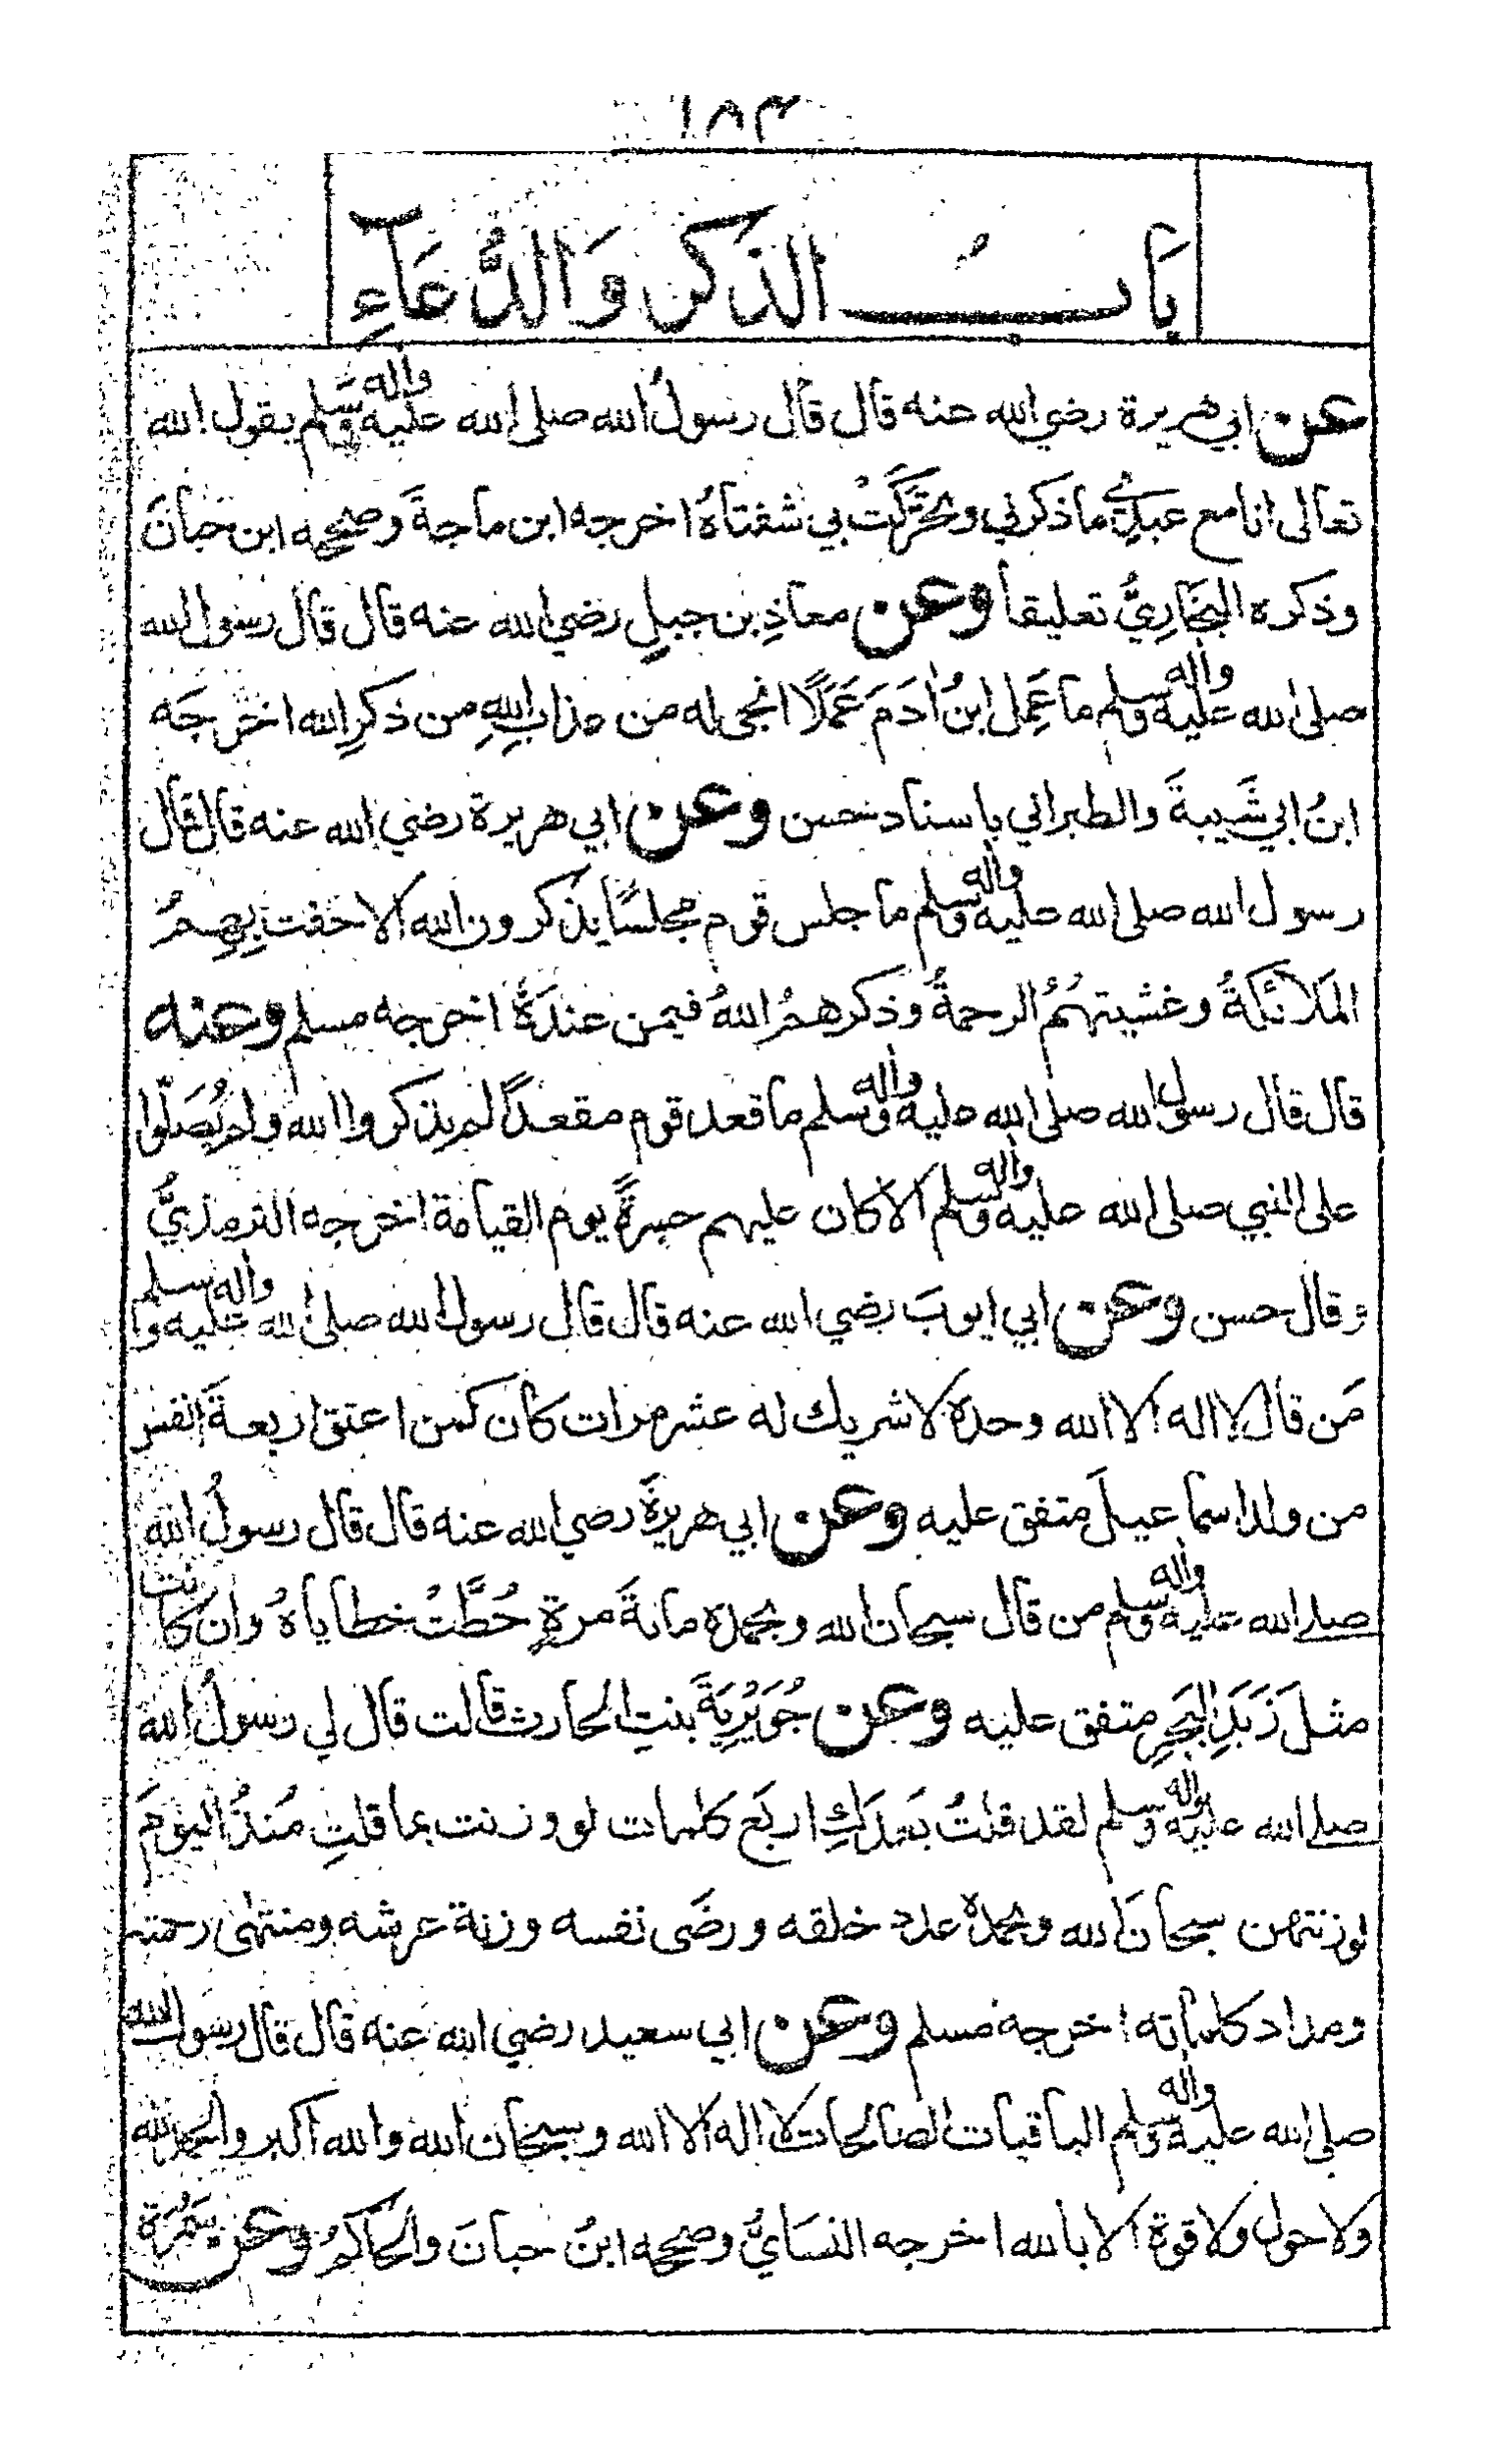 ١٨٣
بَابُ الذكر وَالدُّعَآءِ
عن ابي هريرة رضي الله عنه قال قال رسولُ الله صلى الله عليه وآله وسلم يقول الله
تعالى انا مع عبدِي ما ذكرني وتحرَّكَتْ بي شفتاهُ اخرجه ابن ماجةَ وصححه ابن حبانَ
وذكره البخَارِيُّ تعليقاً وعن معاذِ بن جبلٍ رضي الله عنه قال قال رسول الله
صلى الله عليه وآله وسلم ما عَمِل ابنُ اٰدَمَ عَمَلًا انجى له من عذابِ اللهِ من ذكرِ الله اخرجَه
ابنُ ابي شَيبةَ والطبراني باسناد حسن وعن ابي هريرة رضي الله عنه قال قال
رسول الله صلى الله عليه وآله وسلم ما جلس قوم مجلسًا يذكرون الله الا حفت بِهِمُ
المَلائكةُ وغشيتهُمُ الرحمةُ وذكرهمُ اللهُ فيمن عندَهُ اخرجه مسلم وعنه
قال قال رسول الله صلى الله عليه وآله وسلم ما قعد قوم مقعداً لم يذكروا الله ولم يُصَلّوا
على النبي صلى الله عليه وآله وسلم الا كان عليهم حسرةً يوم القيامة اخرجه الترمذيُّ
وقال حسن وعن ابي ايوبَ رضي الله عنه قال قال رسول الله صلى الله عليه وآله وسلم
مَن قال لا اله الا الله وحده لا شريك له عشر مرات كان كمن اعتق اربعةَ انفس
من ولد اسماعيلَ متفق عليه وعن ابي هريرةَ رضي الله عنه قال قال رسولُ الله
صلى الله عليه وآله وسلم من قال سبحان الله وبحمده مائةَ مرةٍ حُطَّتْ خطاياهُ وان كانت
مثلَ زَبَدِ البَحرِ متفق عليه وعن جُوَيْرِيَةَ بنتِ الحارث قالت قال لي رسولُ الله
صلى الله عليه وآله وسلم لقد قلتُ بَعدَكِ اربَع كلمات لو وزنت بما قلتِ مُنذُ اليَومَ
لوزنتهن سبحانَ الله وبحمده عدد خلقه ورضَى نفسه وزنة عرشه ومنتهى رحمته
ومداد كلماته اخرجه مسلم وعن ابي سعيد رضي الله عنه قال قال رسول الله
صلى الله عليه وآله وسلم الباقيات الصالحات لا اله الا الله وسبحان الله والله اكبر والحمد لله
ولا حول ولا قوة الا بالله اخرجه النسَايُّ وصححه ابنُ حبانَ والحاكمُ وعن سَمُرَة